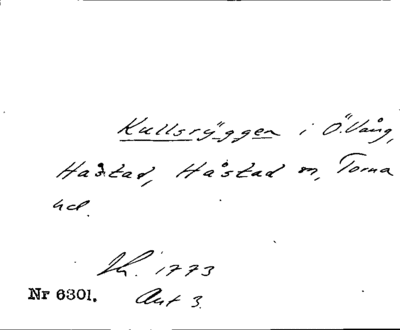 Kullsrÿggen i Ö. Vång,
Håstad, Håstad sn, Torna
hd.
Sk. 1773
Nr 6301. Akt 3.